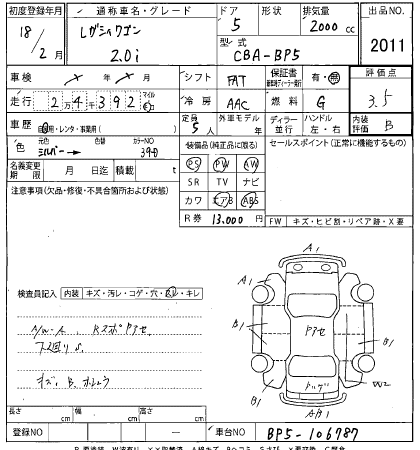 初度登録年月 通称車名・グレード ドア 形状 排気量 出品NO.
18/2月 レガシィワゴン 2.0i 5 2000cc 2011
型式 CBA-BP5
車検 × × 月 シフト FAT 保証書 有・無 評価点
走行 2万4千392マイル 冷房 AAC 燃料 G 3.5
車歴 自家用・レンタ・事業用( ) 定員 5人 外車モデル 年 ディーラー 並行 ハンドル 左・右 内装評価 B
色 元色 シルバー → 色替 カラーNO 39D 装備品(純正品に限る) セールスポイント(正常に機能するもの)
名義変更期限 月 日迄 積載 t PS PW AW
注意事項(欠品・修復・不具合箇所および状態) SR TV ナビ
カワ エアB ABS
R券 13,000円 FW キズ・ヒビ割・リペア跡・X要
A1
検査員記入 内装 キズ・汚レ・コゲ・穴・スレ・キレ A1
B1 Pアセ B1
下廻りS
キズ、B、
B1 W2
AB1
長さ cm 幅 cm 高さ cm
登録NO 車台NO BP5-106787